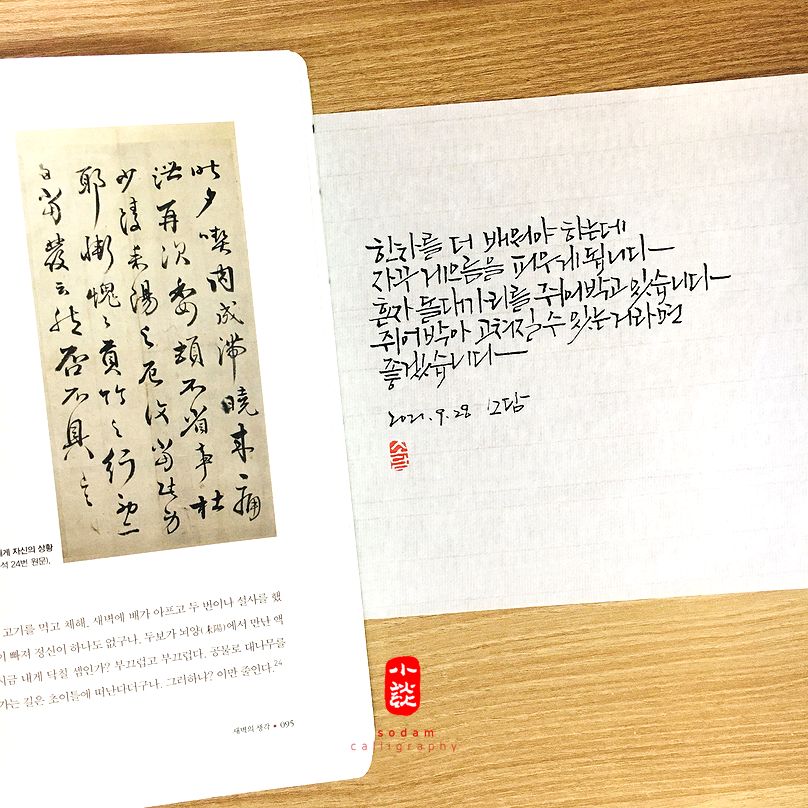 昨夕喫肉成滯曉來一痛
泄再次委頓不省事杜
少陵耒陽之厄當
耶慚愧〻貢竹之行初二
日當發云然否不具
게 자신의 상황
석 24번 원문).
고기를 먹고 체해, 새벽에 배가 아프고 두 번이나 설사를 했
이 빠져 정신이 하나도 없구나. 두보가 뇌양(耒陽)에서 만난 액
지금 내게 닥칠 셈인가? 부끄럽고 부끄럽다. 공물로 대나무를
가는 길은 초이틀에 떠난다더구나. 그러하냐? 이만 줄인다.24
새벽의 생각 • 095
한자를 더 배워야 하는데
자꾸 게으름을 피우게 됩니다
혼자 들대가리를 쥐어박고 있습니다
쥐어박아 고쳐질 수 있는 거라면
좋겠습니다
2021.9.28 소담
소담
小談
sodam
calligraphy